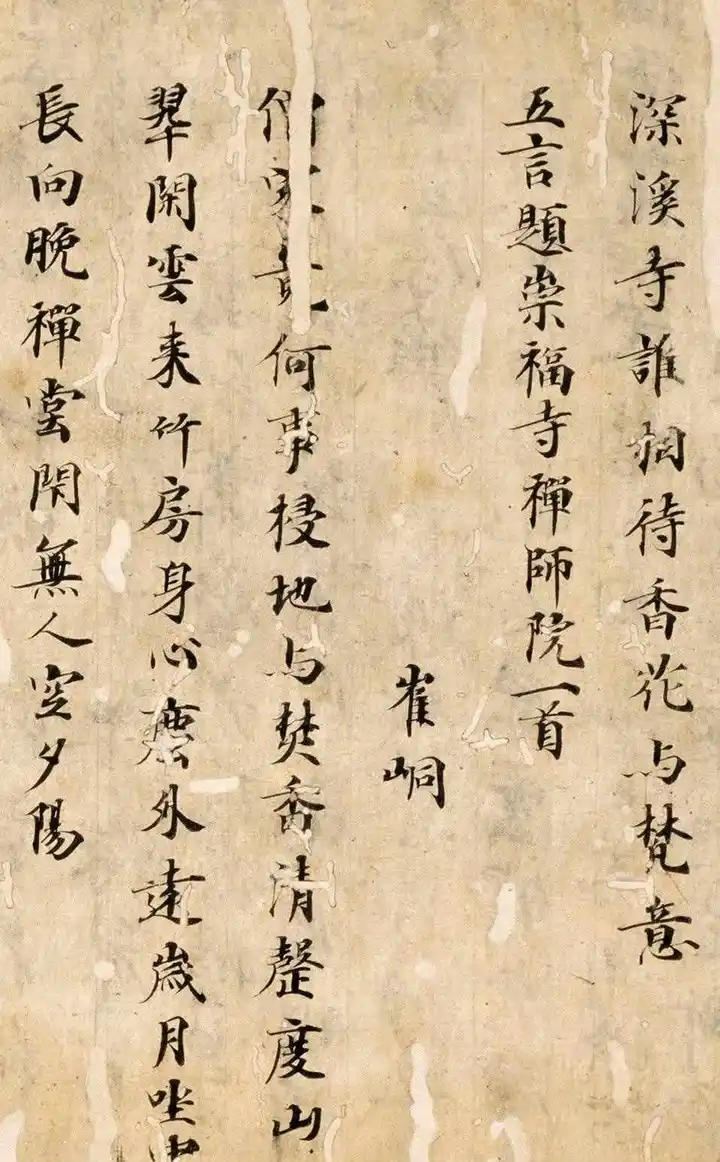 深溪寺誰相待香花与梵意
五言題崇福寺禪師院一首
崔峒
僧家竟何事掃地与焚香清磬度山
翠閑雲来竹房身心塵外遠歲月坐中
長向晚禪堂閇無人空夕陽